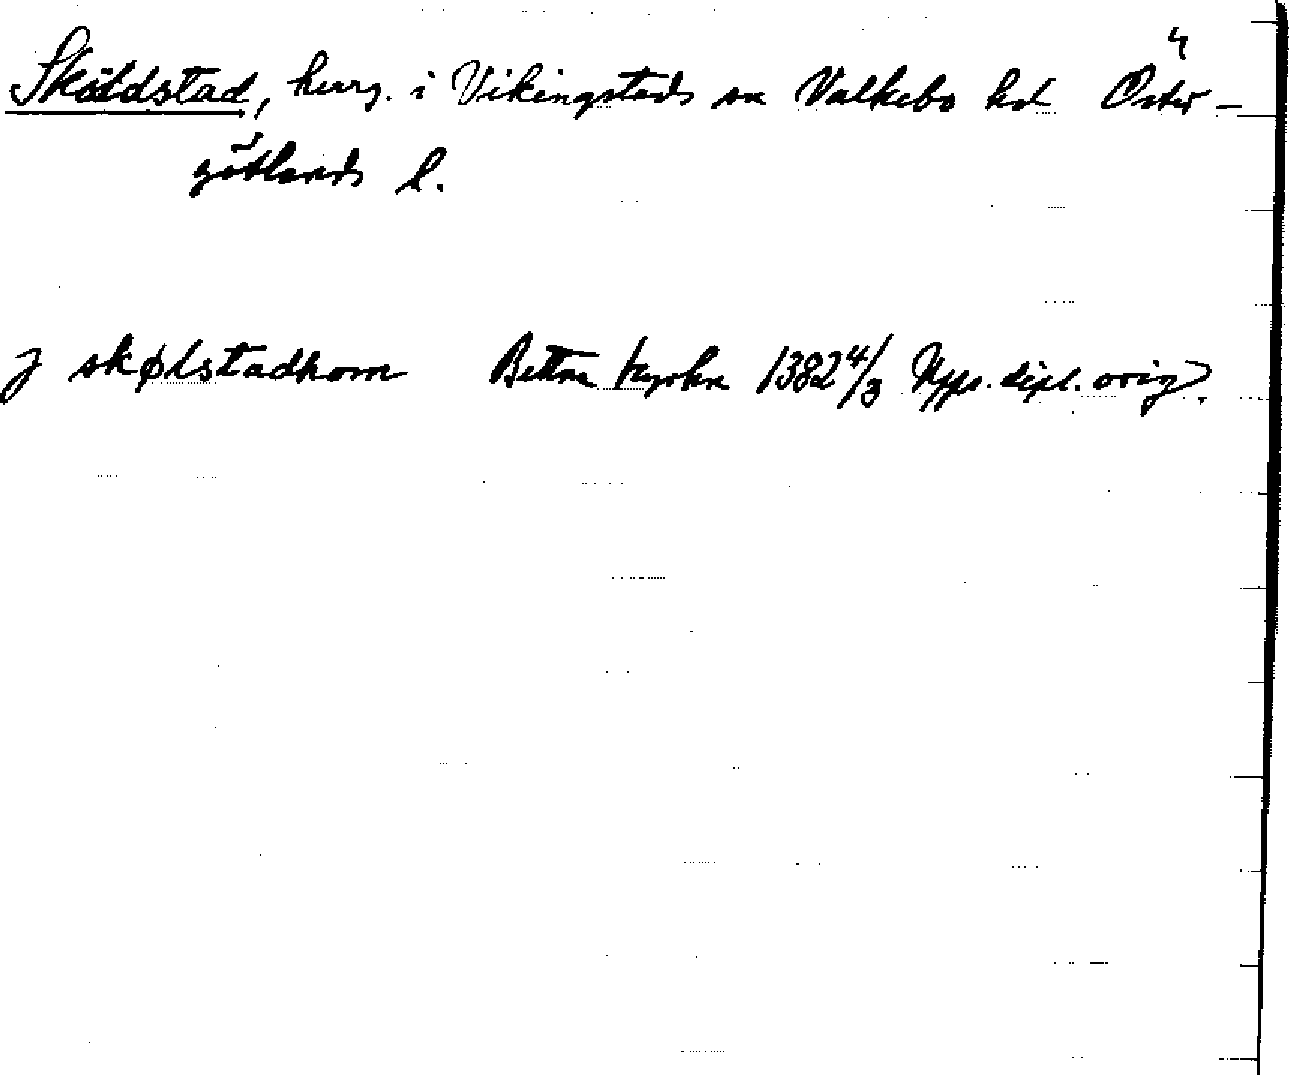 4
Sköldstad, herrg. i Vikingstads sn Valkebo hd Öster-
götlands l.
J skølstadhom Bettna kyrka 1382 4/3 Upps. dipl. orig.